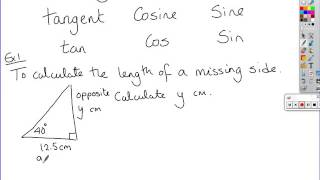 tangent Cosine Sine
tan Cos Sin
Ex1
To calculate the length of a missing side.
opposite Calculate y cm.
y cm
40°
12.5cm
a